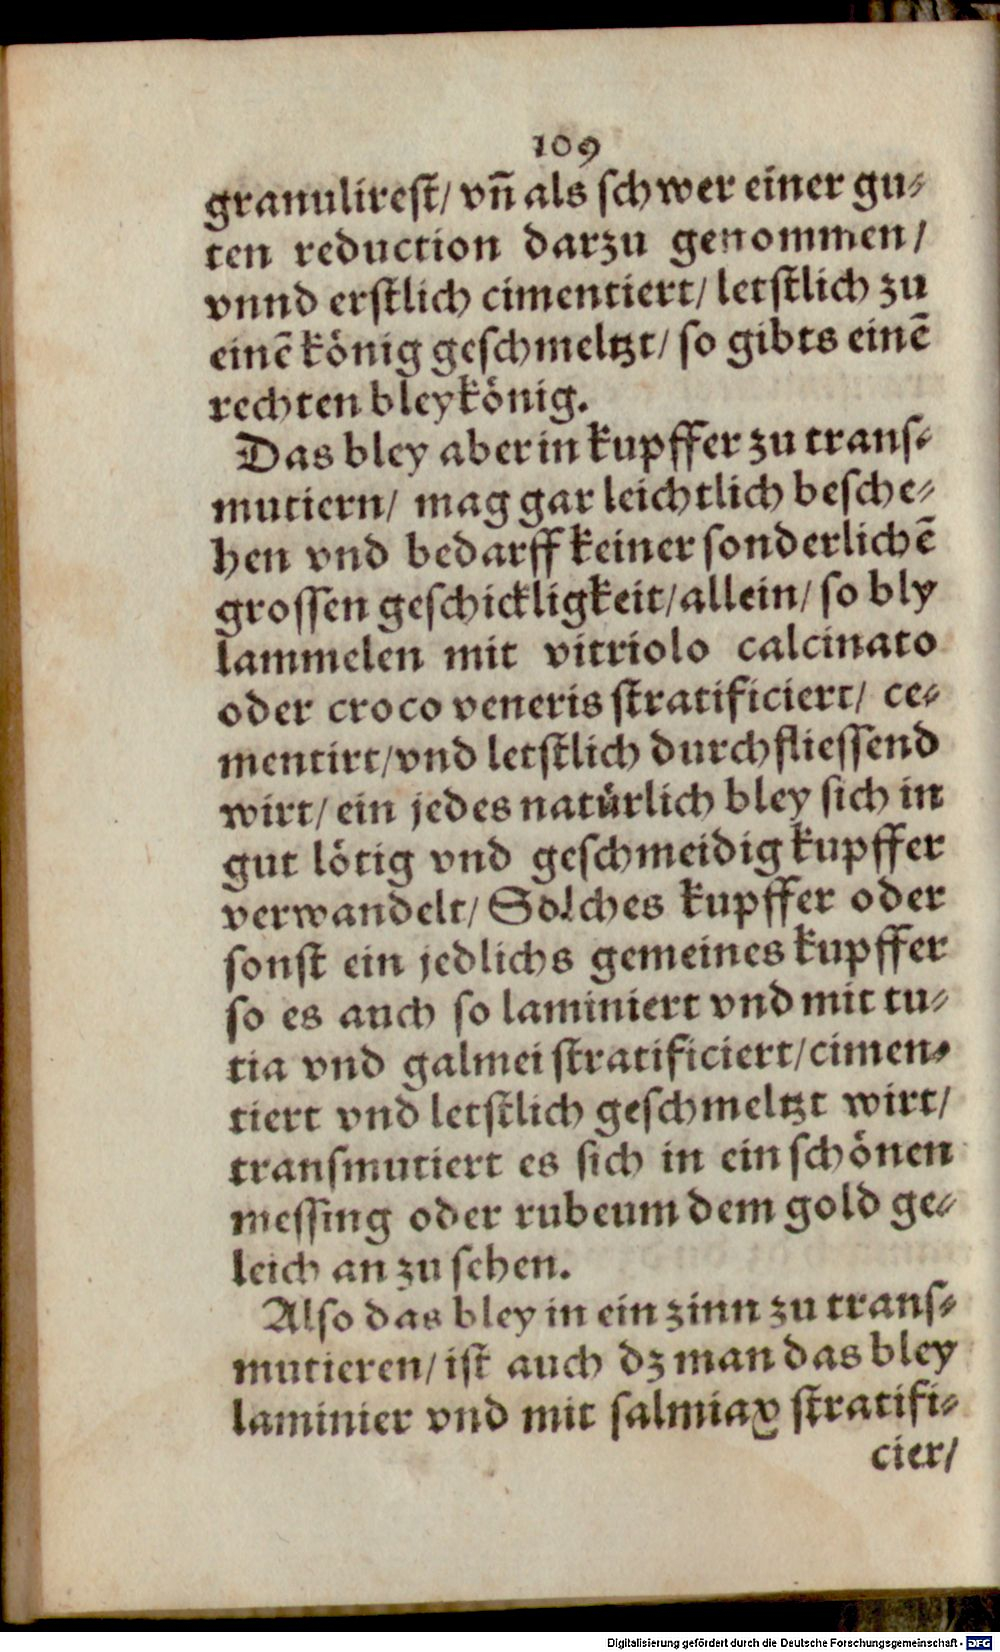 109
granulirest/ vñ als schwer einer gu⸗
ten reduction darzu genommen/
vnnd erstlich cimentiert/ letstlich zu
einē könig geschmeltzt/ so gibts einē
rechten bleykönig.
Das bley aber in kupffer zu trans⸗
mutiern/ mag gar leichtlich besche⸗
hen vnd bedarff keiner sonderlichē
grossen geschickligkeit/ allein/ so bly
lammelen mit vitriolo calcinato
oder croco veneris stratificiert/ ce⸗
mentirt/ vnd letstlich durchfliessend
wirt/ ein jedes natürlich bley sich in
gut lötig vnd geschmeidig kupffer
verwandelt/ Solches kupffer oder
sonst ein jedlichs gemeines kupffer
so es auch so laminiert vnd mit tu⸗
tia vnd galmei stratificiert/ cimen⸗
tiert vnd letstlich geschmeltzt wirt/
transmutiert es sich in ein schönen
messing oder rubeum dem gold ge⸗
leich an zu sehen.
Also das bley in ein zinn zu trans⸗
mutieren/ ist auch dz man das bley
laminier vnd mit salmiax stratifi⸗
cier/
Digitalisierung gefördert durch die Deutsche Forschungsgemeinschaft - DFG